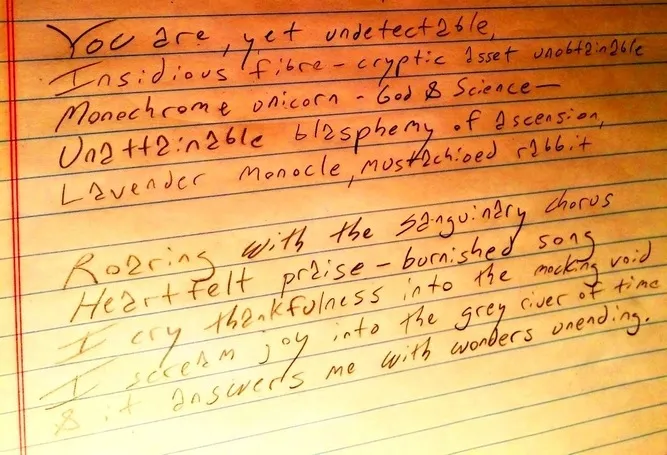 You are, yet undetectable,
Insidious fibre - cryptic asset unobtainable
Monochrome unicorn - God & Science -
Unattainable blasphemy of ascension,
Lavender monocle, mustachioed rabbit
Roaring with the sanguinary chorus
Heartfelt praise - burnished song
I cry thankfulness into the mocking void
I scream joy into the grey river of time
& it answers me with wonders unending.